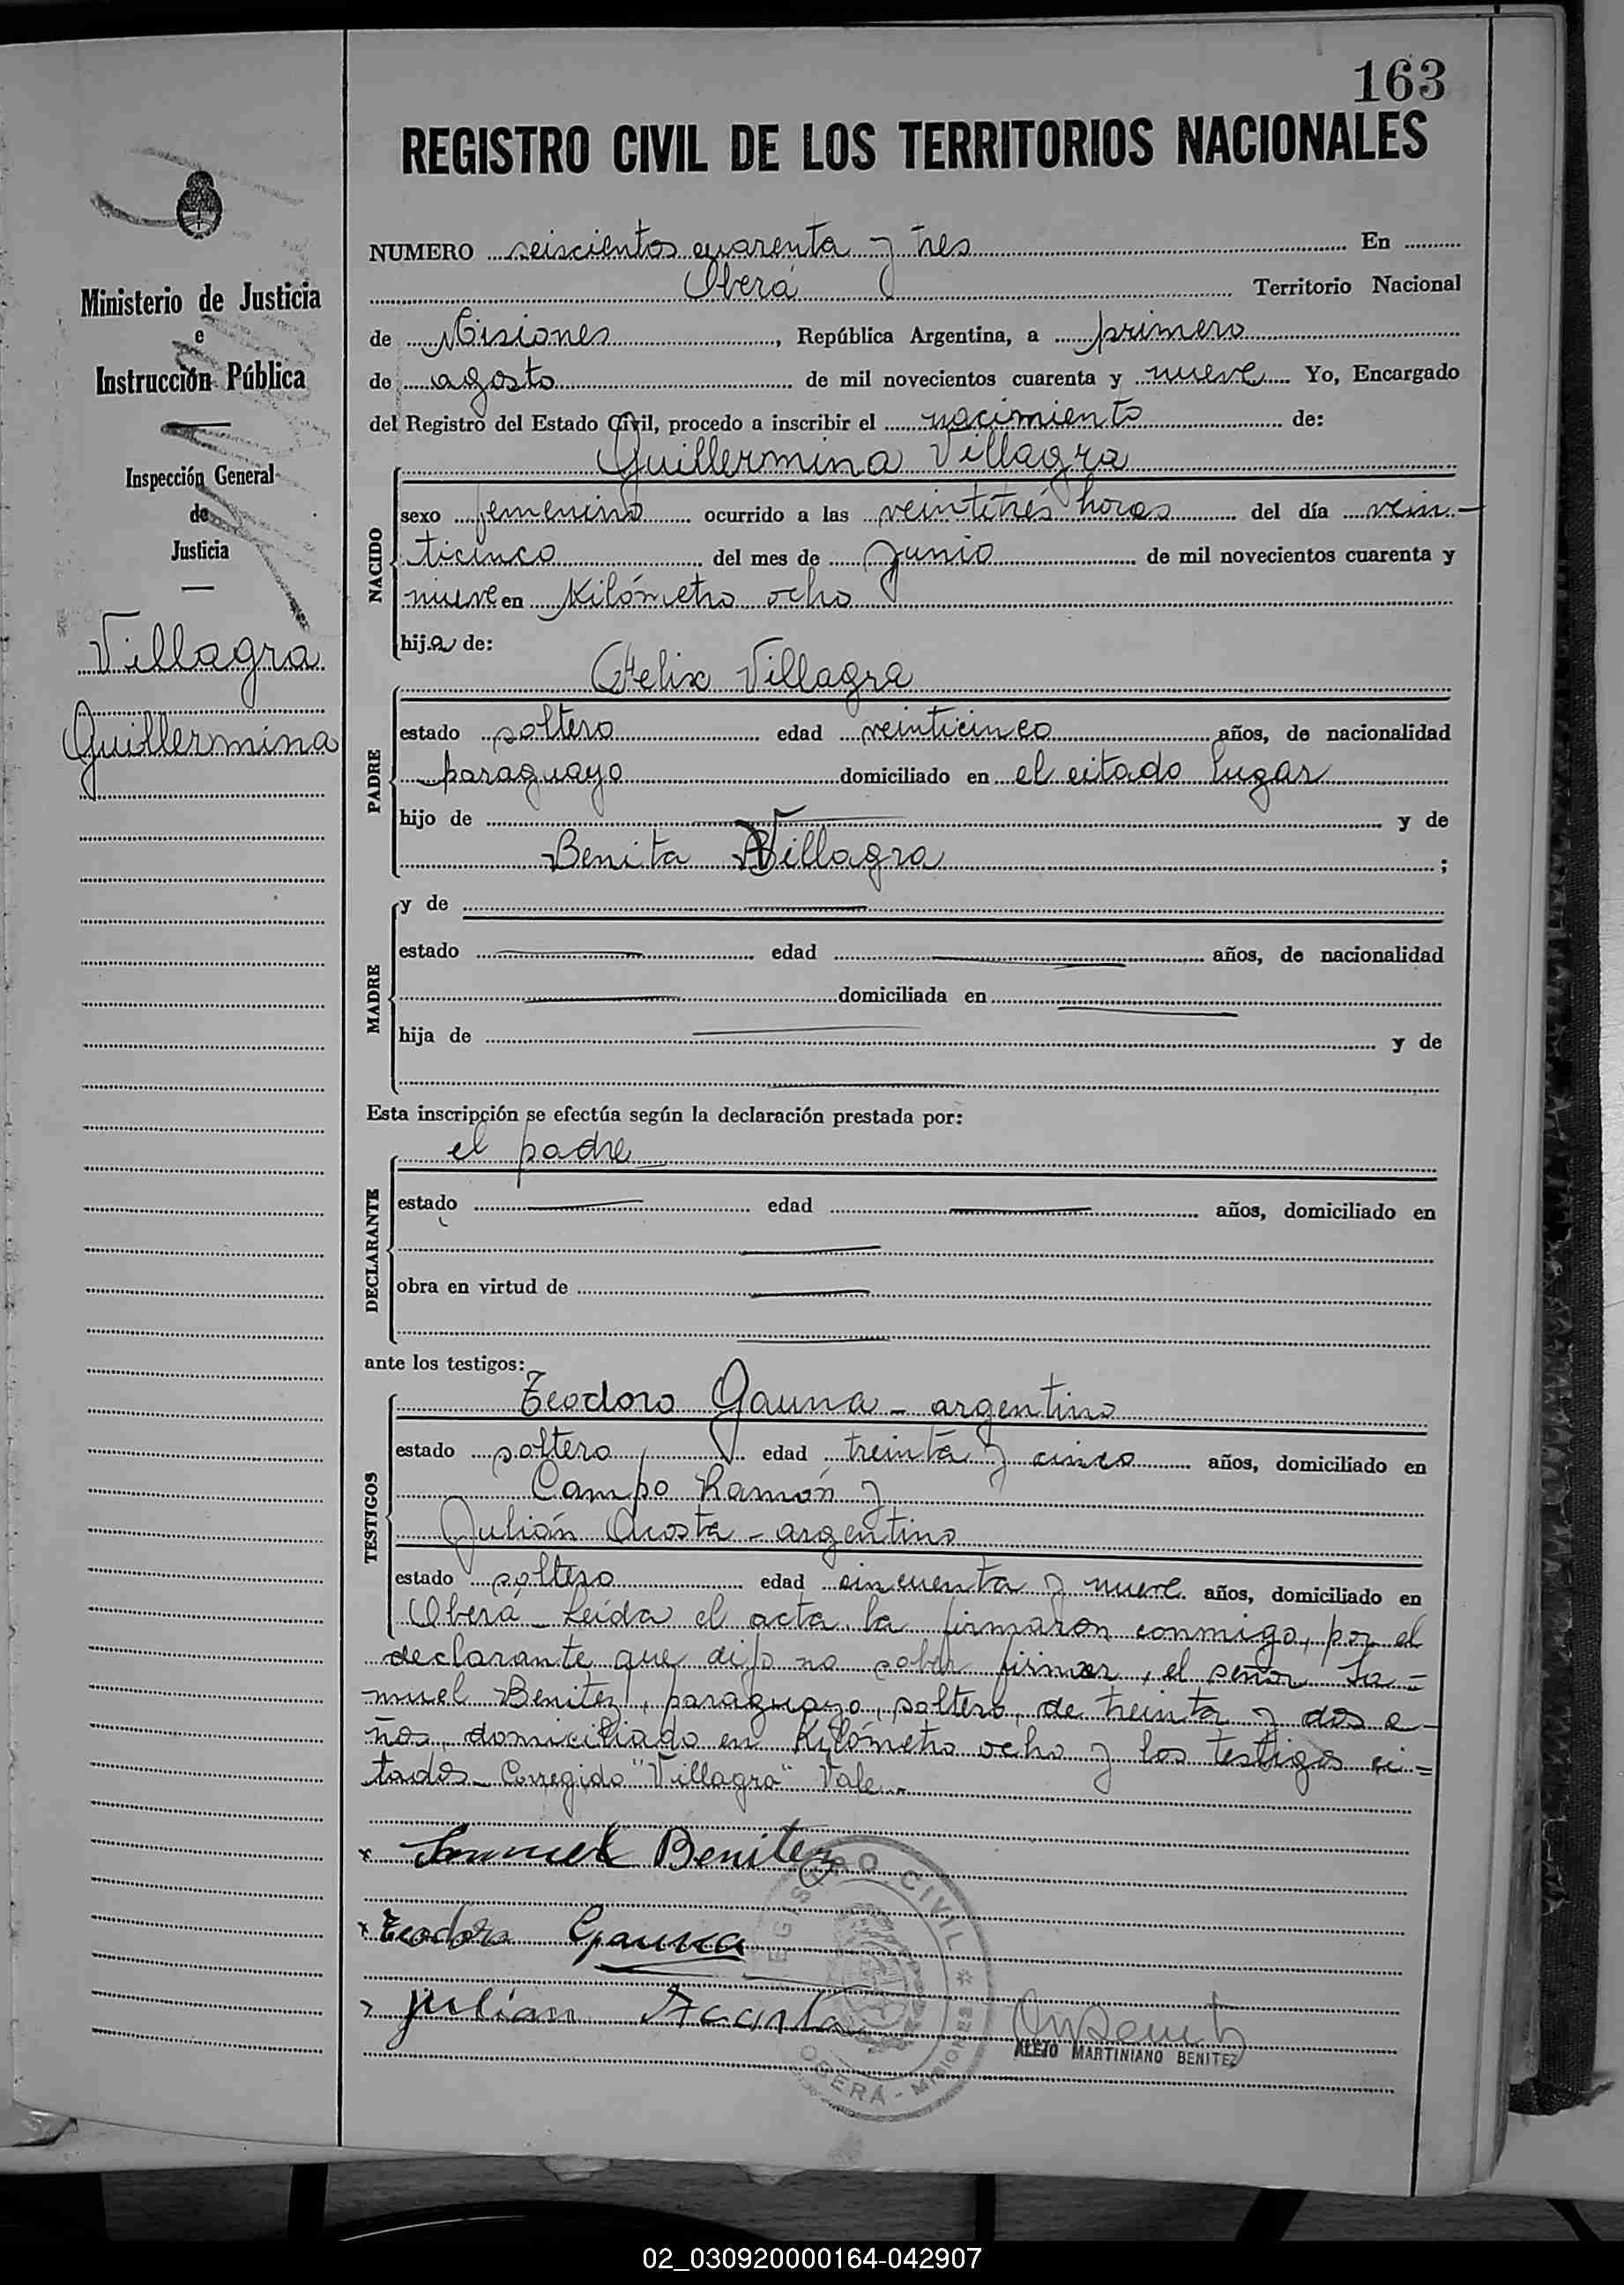 163
REGISTRO CIVIL DE LOS TERRITORIOS NACIONALES
Ministerio de Justicia
e
Instrucción Pública
Inspección General
de
Justicia
Villagra
Guillermina
NUMERO seiscientos cuarenta y tres En
Oberá Territorio Nacional
de Misiones, República Argentina, a primero
de agosto de mil novecientos cuarenta y nueve Yo, Encargado
del Registro del Estado Civil, procedo a inscribir el nacimiento de:
NACIDO
Guillermina Villagra
sexo femenino ocurrido a las veintitrés horas del día vein-
ticinco del mes de junio de mil novecientos cuarenta y
nueve en Kilómetro ocho
hija de:
PADRE
Felix Villagra
estado soltero edad veinticinco años, de nacionalidad
paraguayo domiciliado en el citado lugar
hijo de y de
Benita Villagra ;
MADRE
y de
estado edad años, de nacionalidad
domiciliada en
hija de y de
Esta inscripción se efectúa según la declaración prestada por:
DECLARANTE
el padre
estado edad años, domiciliado en
obra en virtud de
ante los testigos:
TESTIGOS
Teodoro Gauna - argentino
estado soltero edad treinta y cinco años, domiciliado en
Campo Ramón y
Julián Acosta - argentino
estado soltero edad cincuenta y nueve años, domiciliado en
Oberá - Leída el acta la firmaron conmigo, por el
declarante que dijo no saber firmar, el señor Sa=
muel Benitez, paraguayo, soltero, de treinta y dos a-
ños, domiciliado en Kilómetro ocho y los testigos ci=
tados - Corregido "Villagra" Vale -
x Samuel Benitez
x Teodoro Gauna
x Julian Acosta
REGISTRO CIVIL * OBERÁ - MISIONES
ALEJO MARTINIANO BENITEZ
02_030920000164-042907